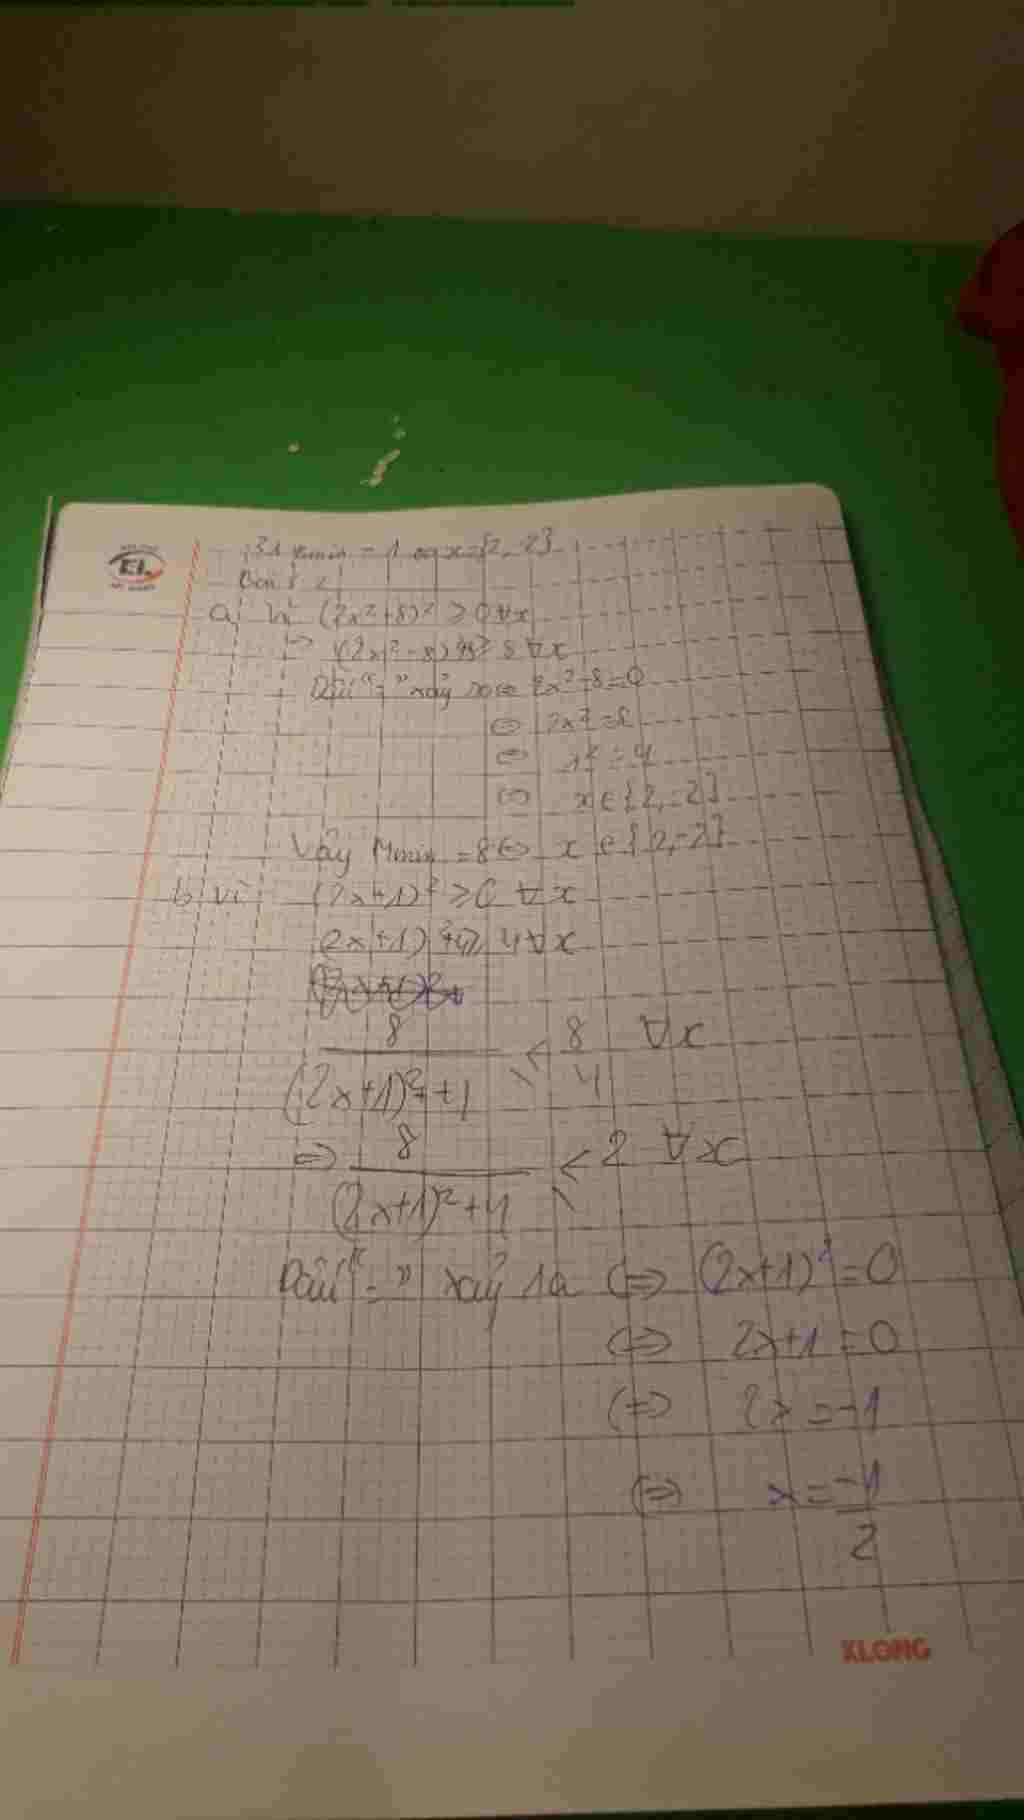 min = 1 x = {2, -2}
Bài 2
a, Vì (2x²-8)² ≥ 0 ∀x
=> (2x²-8)²+8 ≥ 8 ∀x
Dấu "=" xảy ra <=> 2x²-8=0
<=> 2x² = 8
<=> x² = 4
<=> x ∈ {2, -2}
Vậy Mmin = 8 <=> x ∈ {2, -2}
b, Vì (2x+1)² ≥ 0 ∀x
(2x+1)²+4 ≥ 4 ∀x
8/((2x+1)²+4) ≤ 8/4 ∀x
=> 8/((2x+1)²+4) ≤ 2 ∀x
Dấu "=" xảy ra <=> (2x+1)² = 0
<=> 2x+1 = 0
<=> 2x = -1
<=> x = -1/2
KLONG